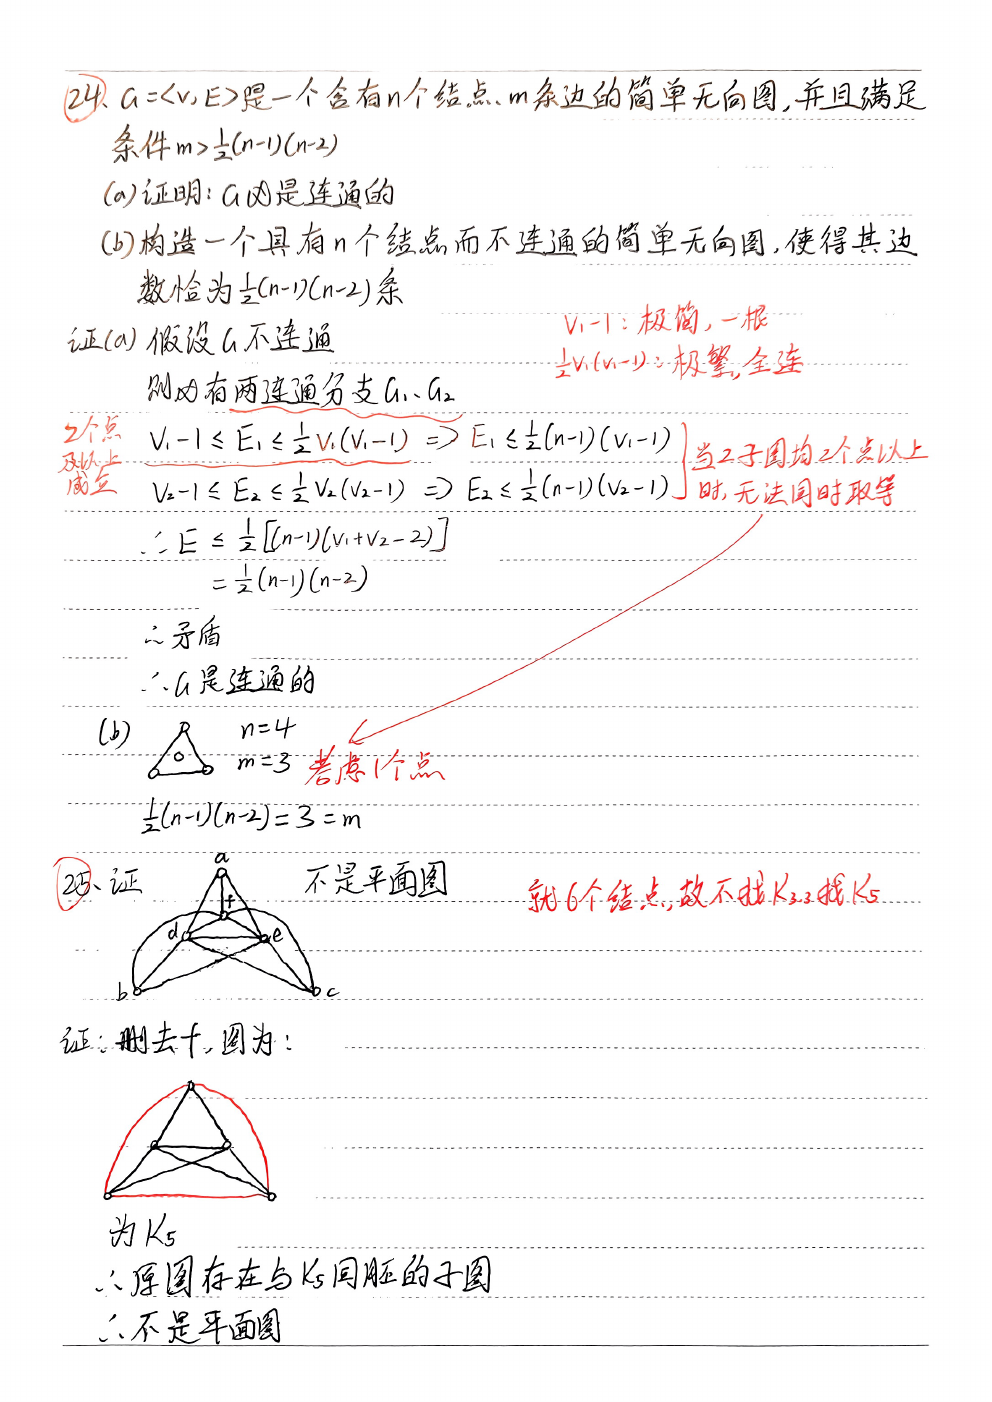 24、G=<V,E>是一个含有n个结点、m条边的简单无向图,并且满足
条件m>½(n-1)(n-2)
(a)证明:G必是连通的
(b)构造一个具有n个结点而不连通的简单无向图,使得其边
数恰为½(n-1)(n-2)条
V₁-1:极简,一根
证(a) 假设G不连通
½V₁(V₁-1):极繁,全连
则必有两连通分支G₁、G₂
2个点
及以上
成立
V₁-1≤E₁≤½V₁(V₁-1) => E₁≤½(n-1)(V₁-1)
V₂-1≤E₂≤½V₂(V₂-1) => E₂≤½(n-1)(V₂-1)
当2子图均2个点以上
时,无法同时取等
∴E ≤ ½[(n-1)(V₁+V₂-2)]
=½(n-1)(n-2)
∴矛盾
∴G是连通的
(b) n=4
m=3 考虑1个点
½(n-1)(n-2)=3=m
25、证 不是平面图
就6个结点,故不找K₃,₃找K₅
a
f
d e
b c
证:删去f,图为:
为K₅
∴原图存在与K₅同胚的子图
∴不是平面图